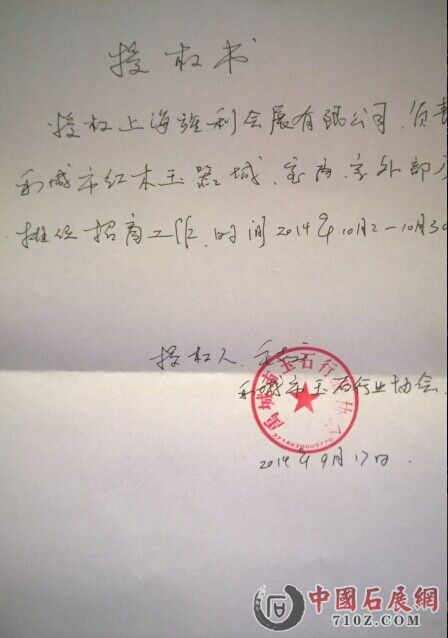 授权书
授权上海雄利会展有限公司,负责
禹城市红木玉器城,室内,室外部分
摊位招商工作,时间2014年10月2—10月30
授权人
禹城市玉石行业协会
禹城市玉石行业协会
3714820009770
2014年9月17日.
中國石展網
710Z.COM